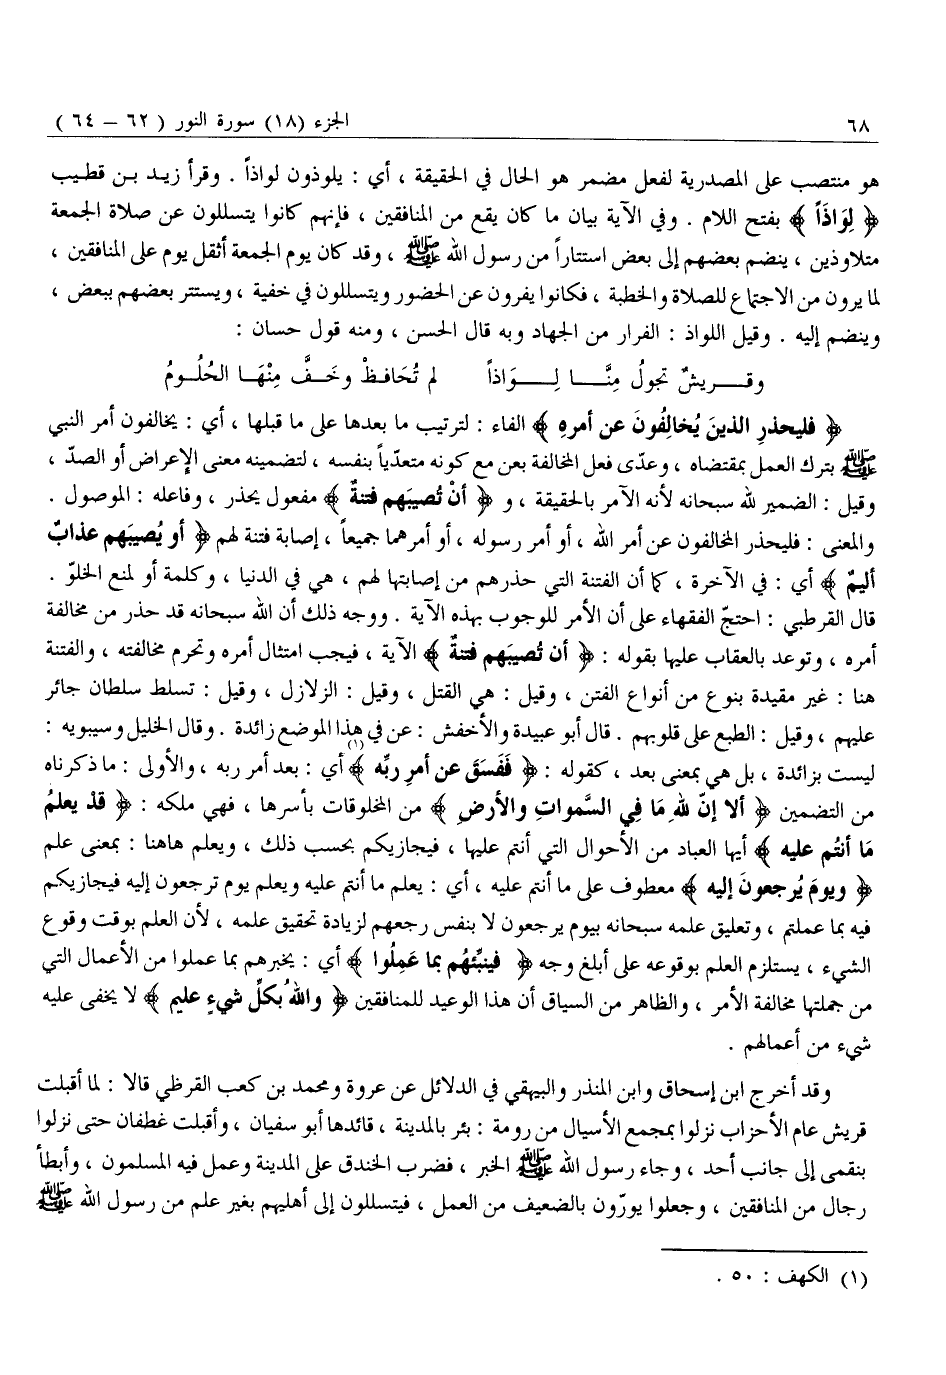 ٦٨ الجزء (١٨) سورة النور ( ٦٢ – ٦٤ )
هو منتصب على المصدرية لفعل مضمر هو الحال في الحقيقة ، أي : يلوذون لواذاً . وقرأ زيد بن قطيب
﴿ لِوَاذَاً ﴾ بفتح اللام . وفي الآية بيان ما كان يقع من المنافقين ، فإنهم كانوا يتسللون عن صلاة الجمعة
متلاوذين ، ينضم بعضهم إلى بعض استتاراً من رسول الله ﷺ ، وقد كان يوم الجمعة أثقل يوم على المنافقين ،
لما يرون من الاجتماع للصلاة والخطبة ، فكانوا يفرون عن الحضور ويتسللون في خفية ، ويستتر بعضهم ببعض ،
وينضم إليه . وقيل اللواذ : الفرار من الجهاد وبه قال الحسن ، ومنه قول حسان :
وقريشٌ تجولُ مِنَّا لِوَاذاً لم تُحَافظْ وخَفَّ مِنْهَا الحُلُومُ
﴿ فليحذرِ الذينَ يُخالِفُونَ عن أمرهِ ﴾ الفاء : لترتيب ما بعدها على ما قبلها ، أي : يخالفون أمر النبي
ﷺ بترك العمل بمقتضاه ، وعدّى فعل المخالفة بعن مع كونه متعدّياً بنفسه ، لتضمينه معنى الإعراض أو الصدّ ،
وقيل : الضمير لله سبحانه لأنه الآمر بالحقيقة ، و ﴿ أنْ تُصيبَهم فتنةٌ ﴾ مفعول يحذر ، وفاعله : الموصول .
والمعنى : فليحذر المخالفون عن أمر الله ، أو أمر رسوله ، أو أمرهما جميعاً ، إصابة فتنة لهم ﴿ أو يُصيبَهم عذابٌ
أليمٌ ﴾ أي : في الآخرة ، كما أن الفتنة التي حذرهم من إصابتها لهم ، هي في الدنيا ، وكلمة أو لمنع الخلوّ .
قال القرطبي : احتجّ الفقهاء على أن الأمر للوجوب بهذه الآية . ووجه ذلك أن الله سبحانه قد حذر من مخالفة
أمره ، وتوعد بالعقاب عليها بقوله : ﴿ أن تُصيبَهم فتنةٌ ﴾ الآية ، فيجب امتثال أمره وتحرم مخالفته ، والفتنة
هنا : غير مقيدة بنوع من أنواع الفتن ، وقيل : هي القتل ، وقيل : الزلازل ، وقيل : تسلط سلطان جائر
عليهم ، وقيل : الطبع على قلوبهم . قال أبو عبيدة والأخفش : عن في هذا الموضع زائدة . وقال الخليل وسيبويه :
ليست بزائدة ، بل هي بمعنى بعد ، كقوله : ﴿ فَفَسَقَ عن أمرِ ربِّه ﴾(١) أي : بعد أمر ربه ، والأولى : ما ذكرناه
من التضمين ﴿ ألا إنّ للهِ مَا فِي السَّمواتِ والأرضِ ﴾ من المخلوقات بأسرها ، فهي ملكه : ﴿ قدْ يعلمُ
مَا أنتُم عليه ﴾ أيها العباد من الأحوال التي أنتم عليها ، فيجازيكم بحسب ذلك ، ويعلم هاهنا : بمعنى علم
﴿ ويومَ يُرجعونَ إليه ﴾ معطوف على ما أنتم عليه ، أي : يعلم ما أنتم عليه ويعلم يوم ترجعون إليه فيجازيكم
فيه بما عملتم ، وتعليق علمه سبحانه بيوم يرجعون لا بنفس رجعهم لزيادة تحقيق علمه ، لأن العلم بوقت وقوع
الشيء ، يستلزم العلم بوقوعه على أبلغ وجه ﴿ فينبِّئهُم بما عَمِلُوا ﴾ أي : يخبرهم بما عملوا من الأعمال التي
من جملتها مخالفة الأمر ، والظاهر من السياق أن هذا الوعيد للمنافقين ﴿ واللهُ بكلِّ شيءٍ عليم ﴾ لا يخفى عليه
شيء من أعمالهم .
وقد أخرج ابن إسحاق وابن المنذر والبيهقي في الدلائل عن عروة ومحمد بن كعب القرظي قالا : لما أقبلت
قريش عام الأحزاب نزلوا بمجمع الأسيال من رومة : بئر بالمدينة ، قائدها أبو سفيان ، وأقبلت غطفان حتى نزلوا
بنقمى إلى جانب أحد ، وجاء رسول الله ﷺ الخبر ، فضرب الخندق على المدينة وعمل فيه المسلمون ، وأبطأ
رجال من المنافقين ، وجعلوا يورّون بالضعيف من العمل ، فيتسللون إلى أهليهم بغير علم من رسول الله ﷺ
(١) الكهف : ٥٠ .